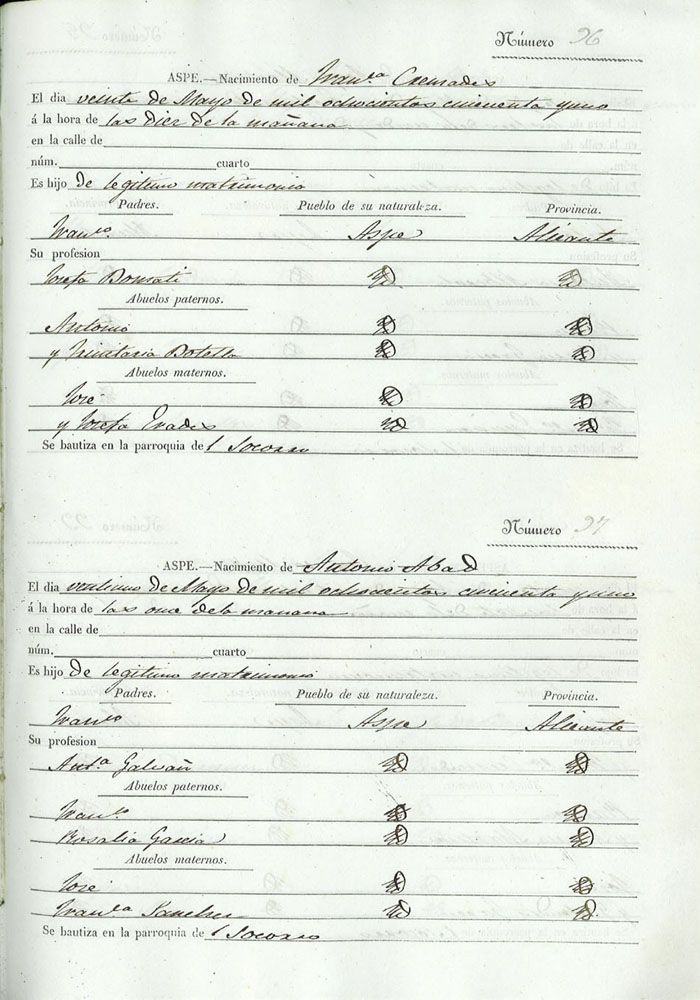 Número 26
ASPE.—Nacimiento de Fran.ca Cremades
El dia veinte de Mayo de mil ochocientos cincuenta y uno
á la hora de las diez de la mañana
en la calle de
núm. cuarto
Es hijo de legitimo matrimonio
Padres. Pueblo de su naturaleza. Provincia.
Fran.co Aspe Alicante
Su profesion
Josefa Id Id
Abuelos paternos.
Antonio Id Id
y Trinitaria Botella Id Id
Abuelos maternos.
José Id Id
y Josefa Id Id
Se bautiza en la parroquia del Socorro
Número 27
ASPE.—Nacimiento de Antonio Abad
El dia ventiuno de Mayo de mil ochocientos cincuenta y uno
á la hora de las once de la mañana
en la calle de
núm. cuarto
Es hijo de legitimo matrimonio
Padres. Pueblo de su naturaleza. Provincia.
Fran.co Aspe Alicante
Su profesion
Ant.a Galvañ Id Id
Abuelos paternos.
Fran.co Id Id
Rosalia Garcia Id Id
Abuelos maternos.
José Id Id
Fran.ca Sanchez Id Id
Se bautiza en la parroquia del Socorro